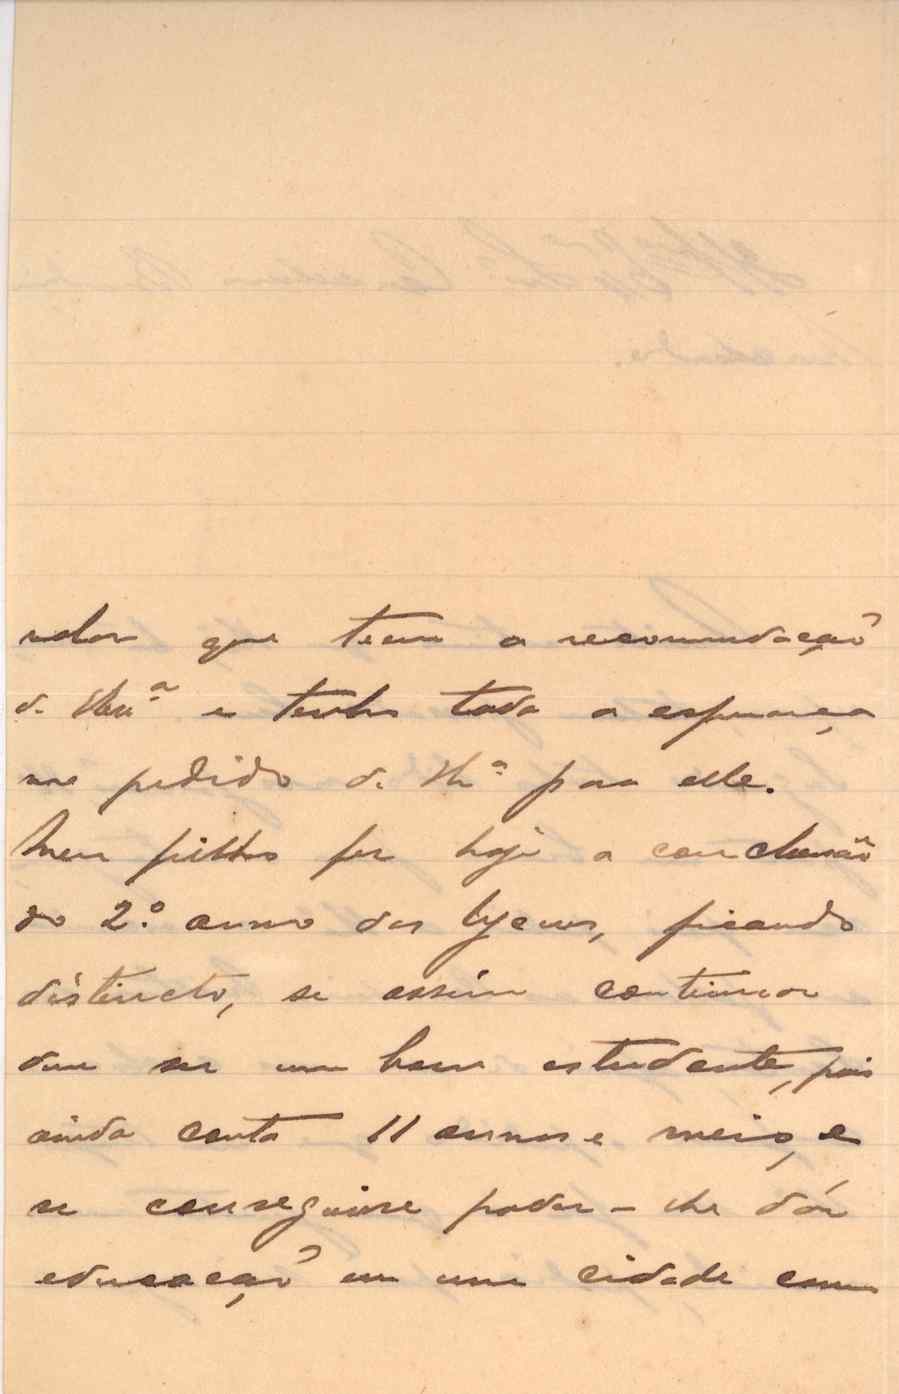 valor que tem a recomendação
de V. Ex.ª e tenho toda a esperança
no pedido de V. Ex.ª para elle.
Meu filho fez hoje a conclusão
do 2.º anno dos lyceus, ficando
distincto, se assim continuar
deve ser um bom estudante, pois
ainda conta 11 annos e meio, e
se conseguisse poder-lhe dár
educação em uma cidade como